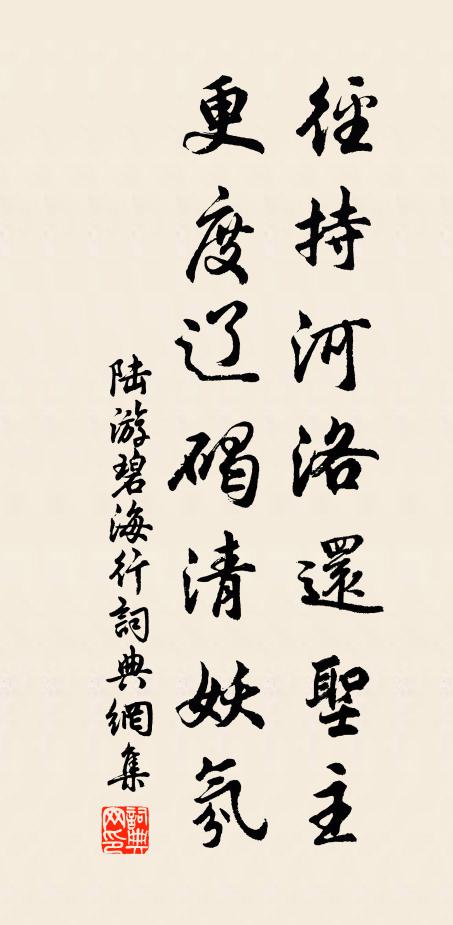 徑持河洛還聖主
更度辽碣清妖氛
陆游碧海行詞典網集
詞典网印